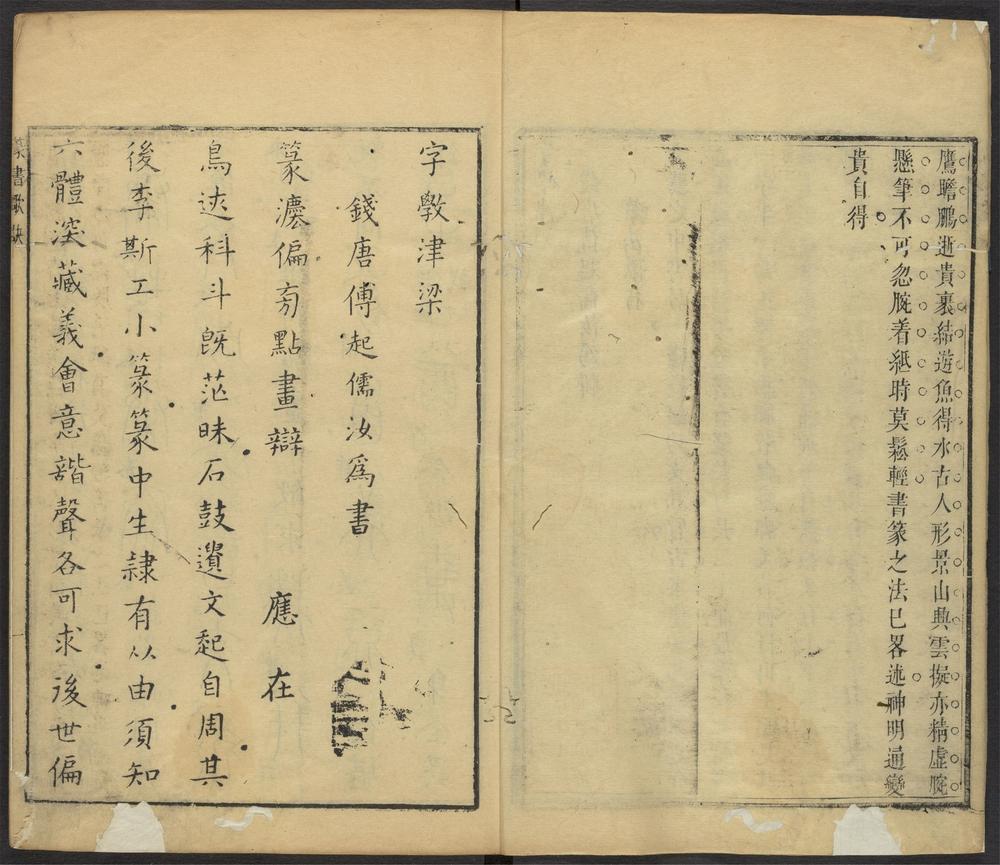 鷹瞻鵬逝貴裹結遊魚得水古人形景山典雲擬亦精虛腕
懸筆不可忽腕着紙時莫鬆輕書篆之法已畧述神明通變
貴自得
字學津梁
錢唐傅起儒汝爲書
篆瀍偏旁點畫辯 應在
鳥迹科斗旣茫昧石鼓遺文起自周其
後李斯工小篆篆中生隷有从由須知
六體深藏義會意諧聲各可求後世偏
篆書歌訣